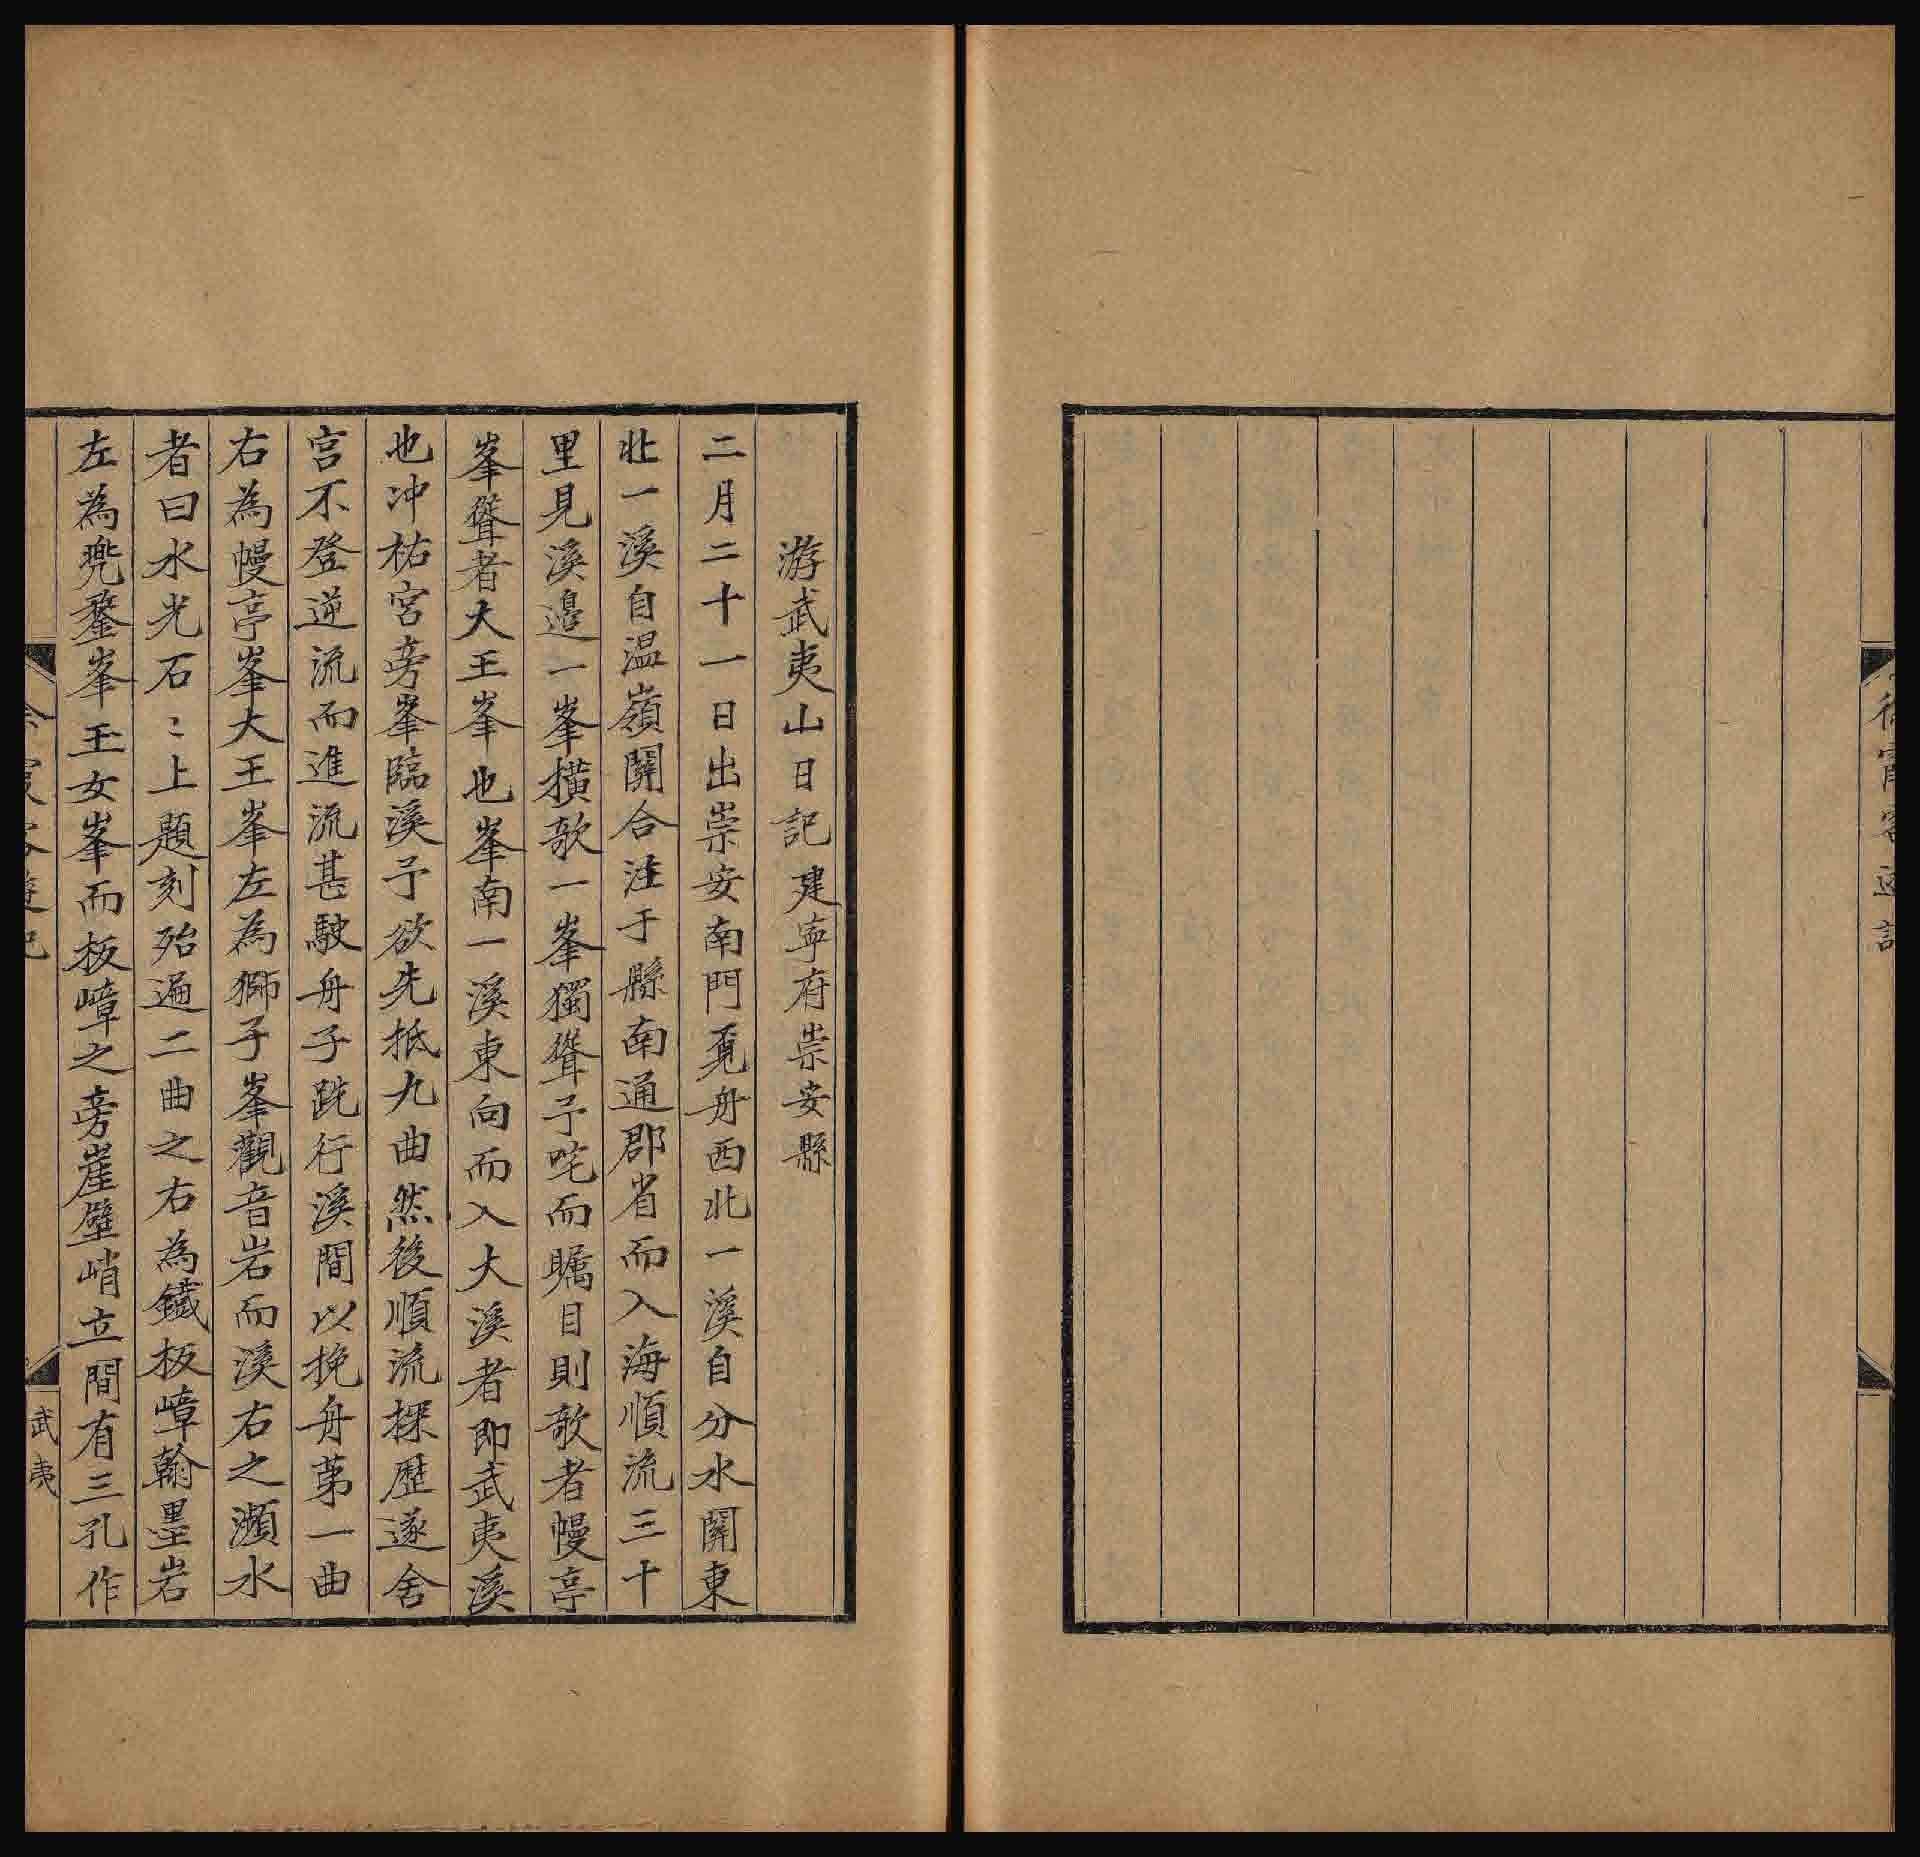 徐霞客遊記
游武夷山日記 建寧府崇安縣
二月二十一日出崇安南門覓舟西北一溪自分水關東
北一溪自温嶺關合注于縣南通郡省而入海順流三十
里見溪邊一峯横欹一峯獨聳予咤而矚目則欹者幔亭
峯聳者大王峯也峯南一溪東向而入大溪者即武夷溪
也冲祐宫旁峯臨溪予欲先抵九曲然後順流探歷遂舍
宫不登逆流而進流甚駛舟子跣行溪間以挽舟苐一曲
右為幔亭峯大王峯左為獅子峯觀音岩而溪右之瀕水
者曰水光石〻上題刻殆遍二曲之右為鐵板嶂翰墨岩
左為兜鍪峯玉女峯而板嶂之旁崖壁峭立間有三孔作
徐霞客遊記
武夷